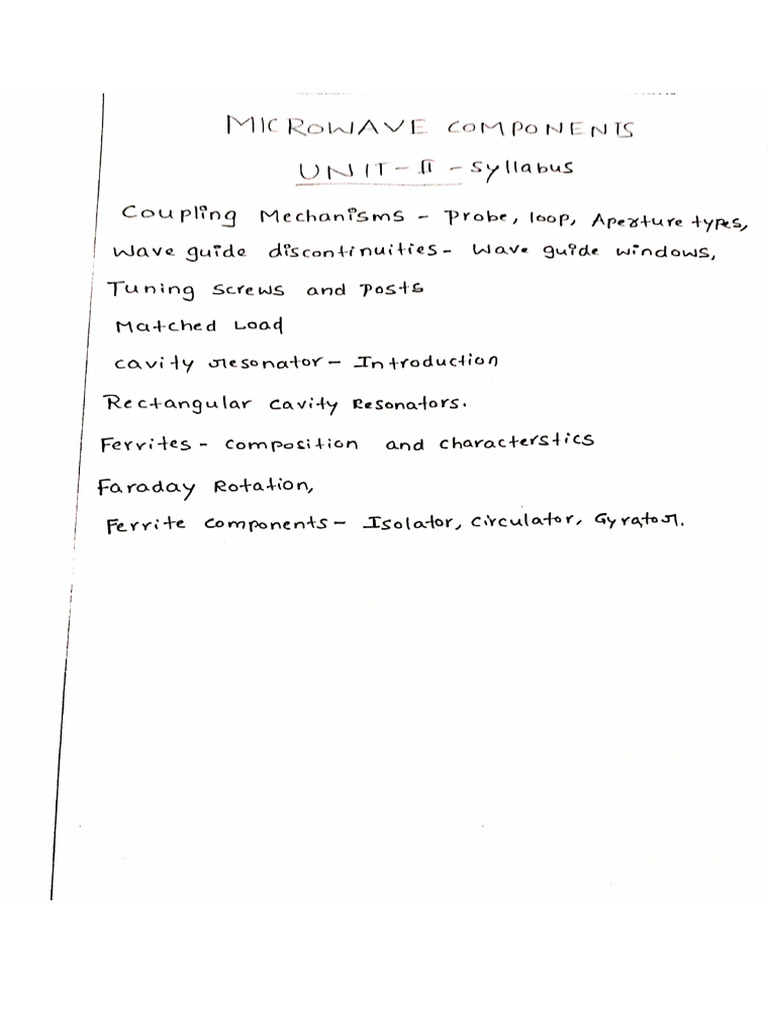 MICROWAVE COMPONENTS
UNIT-II - Syllabus
Coupling Mechanisms - Probe, loop, Aperture types,
Wave guide discontinuities - Wave guide windows,
Tuning screws and Posts
Matched Load
Cavity resonator - Introduction
Rectangular cavity Resonators.
Ferrites - composition and characterstics
Faraday Rotation,
Ferrite components - Isolator, Circulator, Gyrator.